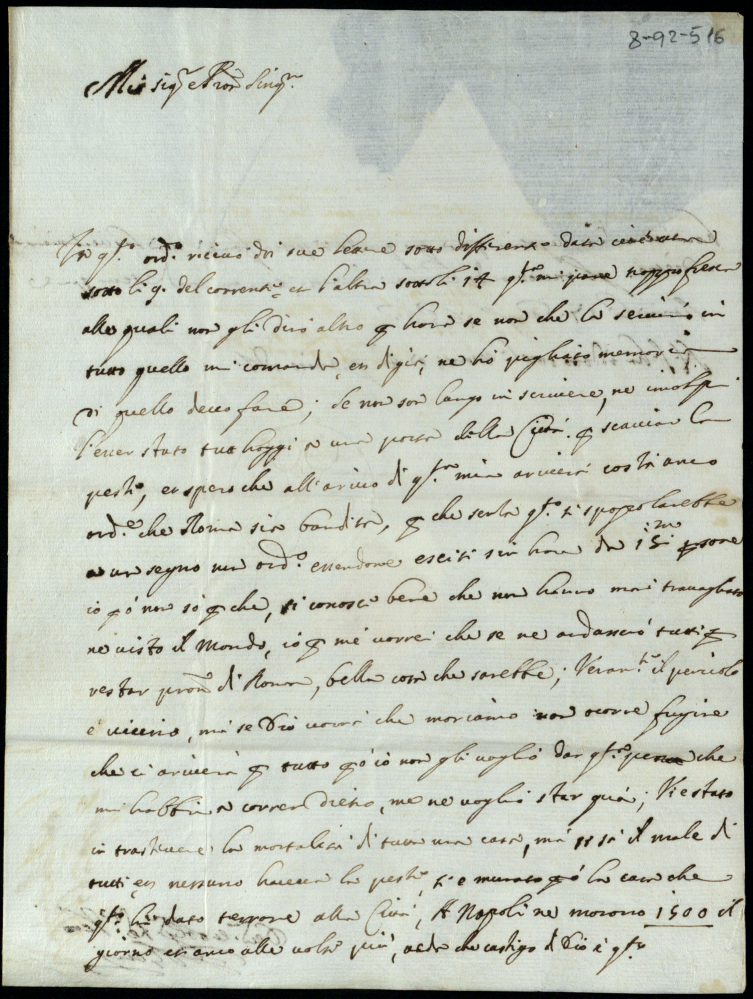 8-92-5 16
Mio sigr e Pron singr
In qsto ordo ricevo doi sue lettere sotto differente data
sotto li 9. del corrente et l'altra sotto li 14 qsto mi pare troppo fresca
alle quali non gli dirò altro p hora se non che la servirò in
tutto quello mi comanda, en di già ne hò pigliato memoria
di quello devo fare; se non son longo in scrivere, ne
l'esser stato tutt hoggi a una porta della Città. p scacciar la
peste, et spero che all'arivo di qsta mia arriverà costì anco
ordne che Roma sia bandita, p che se la qsta si spopolarebbe
a un segno non ordo essendone esciti sin hora da 15m psone
io pò non sò p che, si conosce bene che non hanno mai travagliato
ne visto il Mondo, io p me vorrei che se ne andassero tutti p
restar pron di Roma, bella cosa che sarebbe; Veramte il pericolo
è vicino, mà se Dio vorrà che moriamo non ocorre fugire
che ci ariverà p tutto pò io non gli voglio dar qsta pena che
mi habbia a correr dietro, me ne voglio star quà; Vi è stato
in trastevere la mortalità di tutta una casa, mà si sà il male di
tutti en nessuno haveva la peste, si è murato pò la casa che
qsto ha dato terrore alla Città, A Napoli ne morono 1500 il
giorno et anco alle volte più, veda che castigo di Dio è qsto